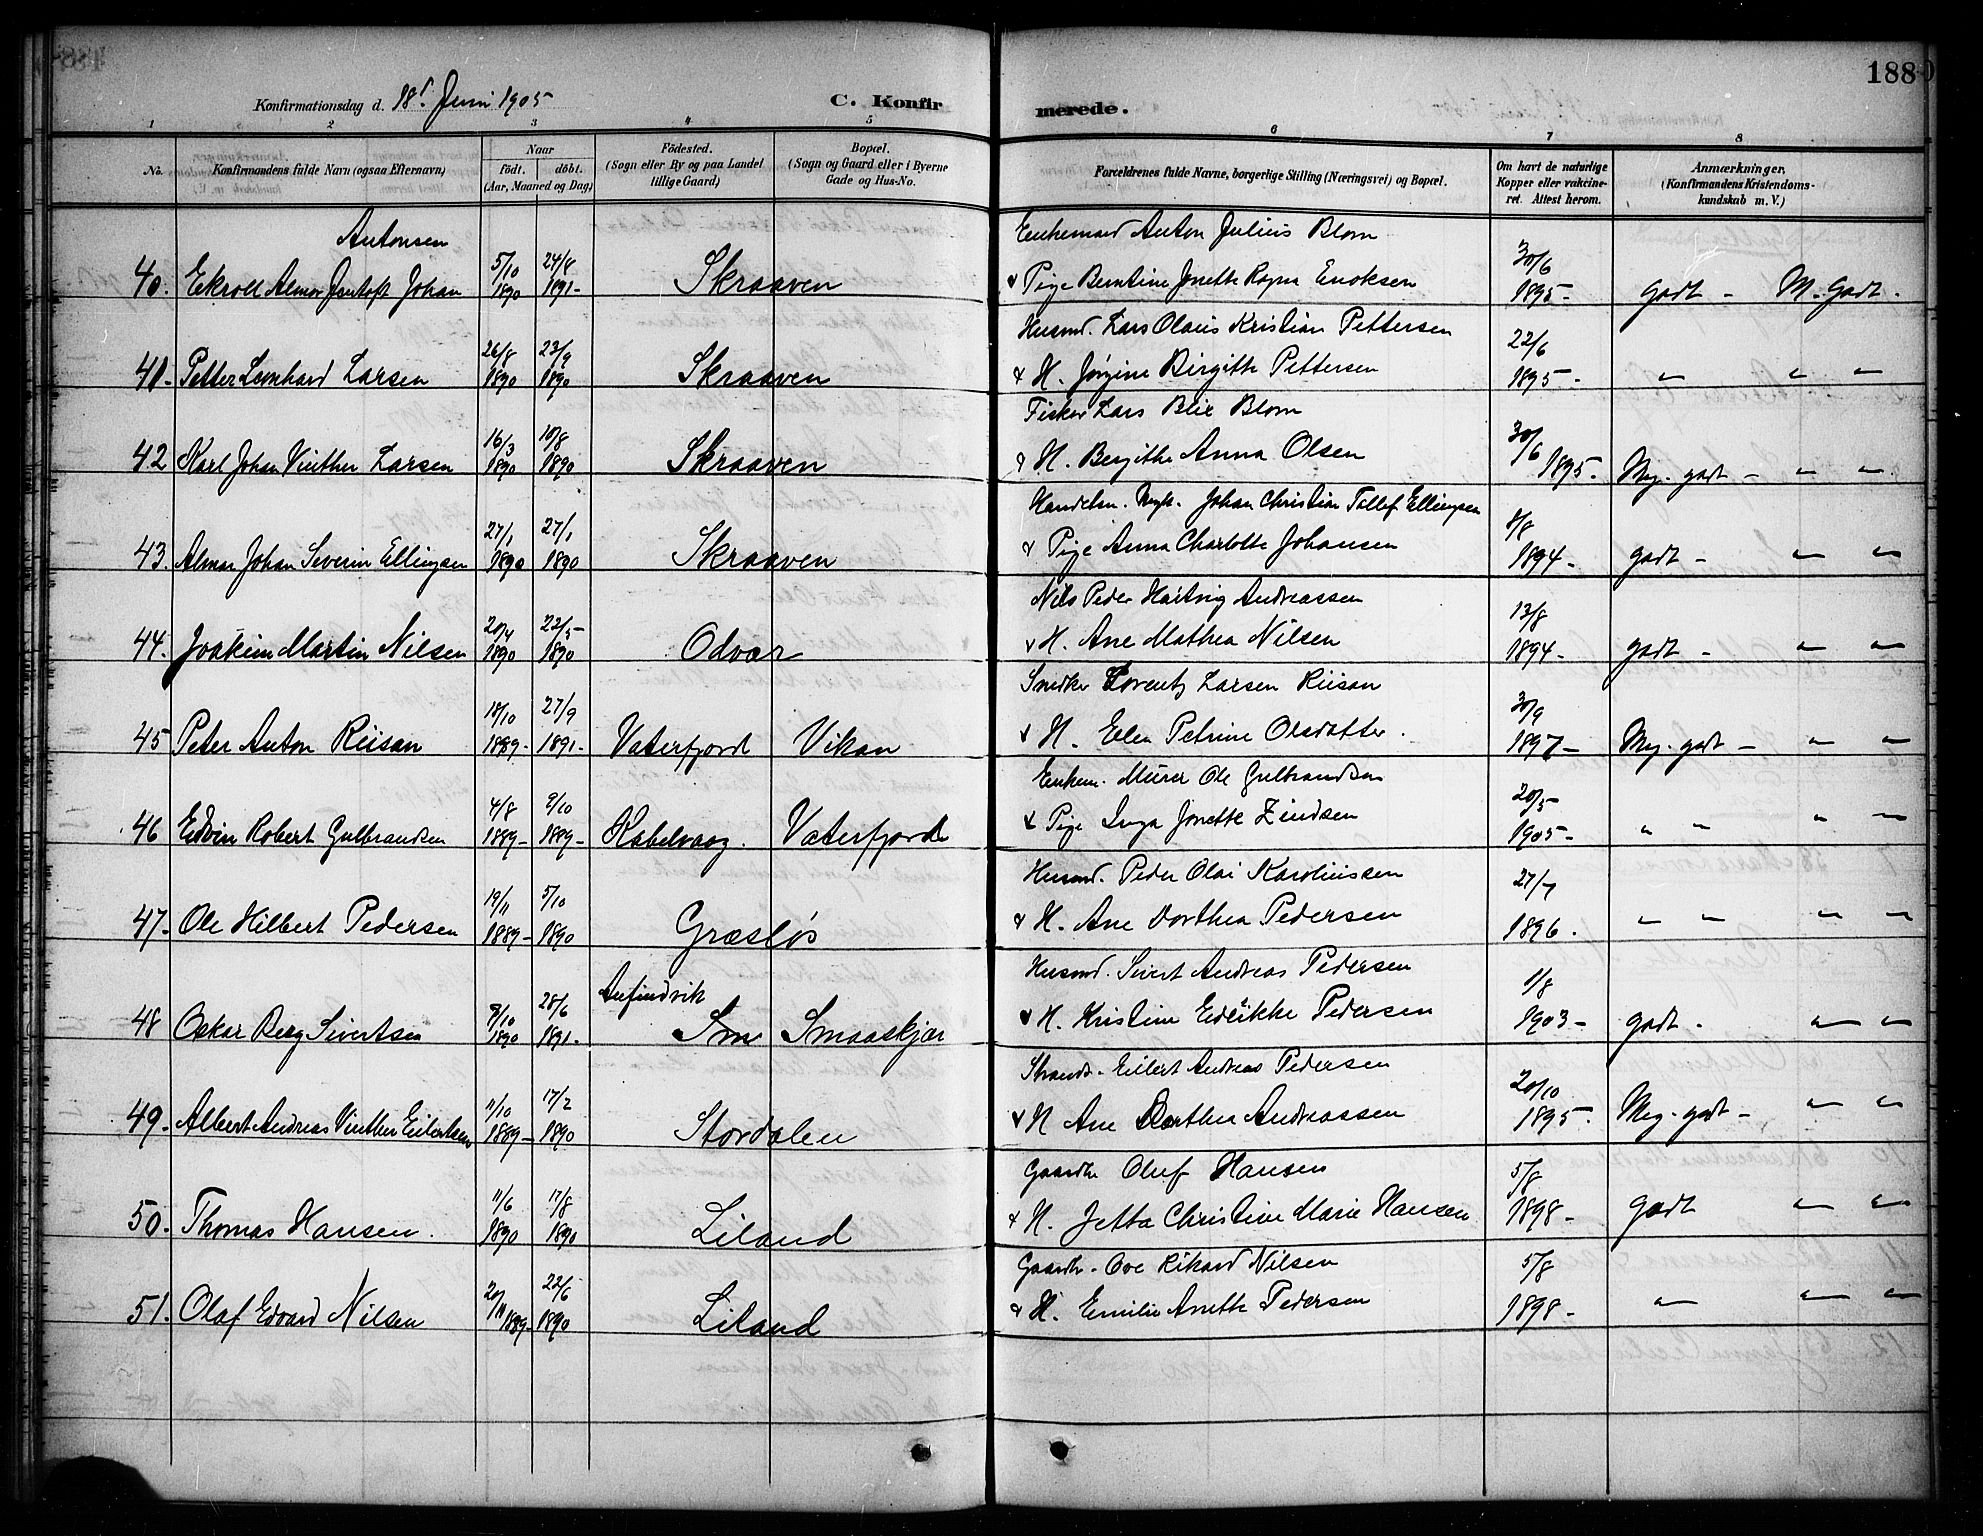 188
Konfirmationsdag d. 18d Juni 1905
C. Konfirmerede.
1 2 3 4 5 6 7 8
No. Konfirmandens fulde Navn (ogsaa Efternavn) Naar födt. döbt. (Aar, Maaned og Dag) Födested. (Sogn eller By og paa Landet tillige Gaard) Bopæl. (Sogn og Gaard eller i Byerne Gade og Hus-No. Forældrenes fulde Navne, borgerlige Stilling (Næringsvei) og Bopæl. Om havt de naturlige Kopper eller vakcineret. Attest herom. Anmærkninger. (Konfirmandens Kristendomskundskab m. V.)
Antonsen
40. Ekroll Almar Jentoft Johan 5/10 1890 24/8 1891- Skraaven Enkemand Anton Julius Blom
& Pige Berntine Jonette Ragna Enoksen 30/6 1895- godt - M. Godt.
41- Petter Leonhard Larsen 26/8 1890 23/9 1890 Skraaven Husmd. Lars Olaus Kristian Pettersen
& H. Jørgine Birgitte Pettersen 22/6 1895- " " "
42 Karl Johan Vinther Larsen 16/3 1890 10/8 1890 Skraaven Fisker Lars Blix Blom
& H. Bergithe Anna Olsen 30/6 1895. Meg. godt - " "
43. Almar Johan Severin Ellingsen 27/1 1890 27/1 1890 Skraaven Handelsm. Johan Christian Tollef Ellingsen
& Pige Anna Charlotte Johansen 8/8 1894- godt - " "
44. Joakim Martin Nilsen 20/4 1890 22/5- 1890 Odvær Nils Peder Hartvig Andreassen
& H. Ane Mathea Nilsen 13/8 1894- godt - " "
45 Peter Anton Riisan 18/10 1889- 27/9 1891- Vaterfjord Vikan Snedker Lorentz Larsen Riisan
& H. Elen Petrine Olsdatter. 30/9 1897- Meg. godt - " "
46 Edvin Robert Gulbrandsen 4/8 1889- 9/10 1889- Kabelvaag. Vaterfjord Enkem. Murer Ole Gulbrandsen
& Pige Inga Jonette Zindsen 20/5 1905- " " " "
47. Ole Hilbert Pedersen 19/11 1889- 5/10 1890 Græsløs Husmd. Peder Olai Karoliussen
& H. Ane Dorthea Pedersen 27/7 1896. " " " "
48 Oskar Berg Sivertsen 9/10 1890 28/6 1891- Anfindvik Sm Smaaskjær Husmd. Sivert Andreas Pedersen
& H. Kristine Edrikke Pedersen 1/8 1903- godt - " "
49. Albert Andreas Vinther Eilertsen 11/10 1889- 17/2 1890 Stordalen Strands. Eilert Andreas Pedersen
& H Ane Dorthea Andreassen 20/10 1895- Meg. godt - " "
50. Thomas Hansen. 11/6 1890 17/8 1890 Liland Gaardb. Oluf Hansen
& H. Jetta Christine Marie Hansen 5/8 1898- godt " "
51. Olaf Edvard Nilsen 20/11 1889- 22/6 1890 Liland Gaardb. Ove Rikard Nilsen
& H. Emilie Anette Pedersen 5/8 1898- " " "